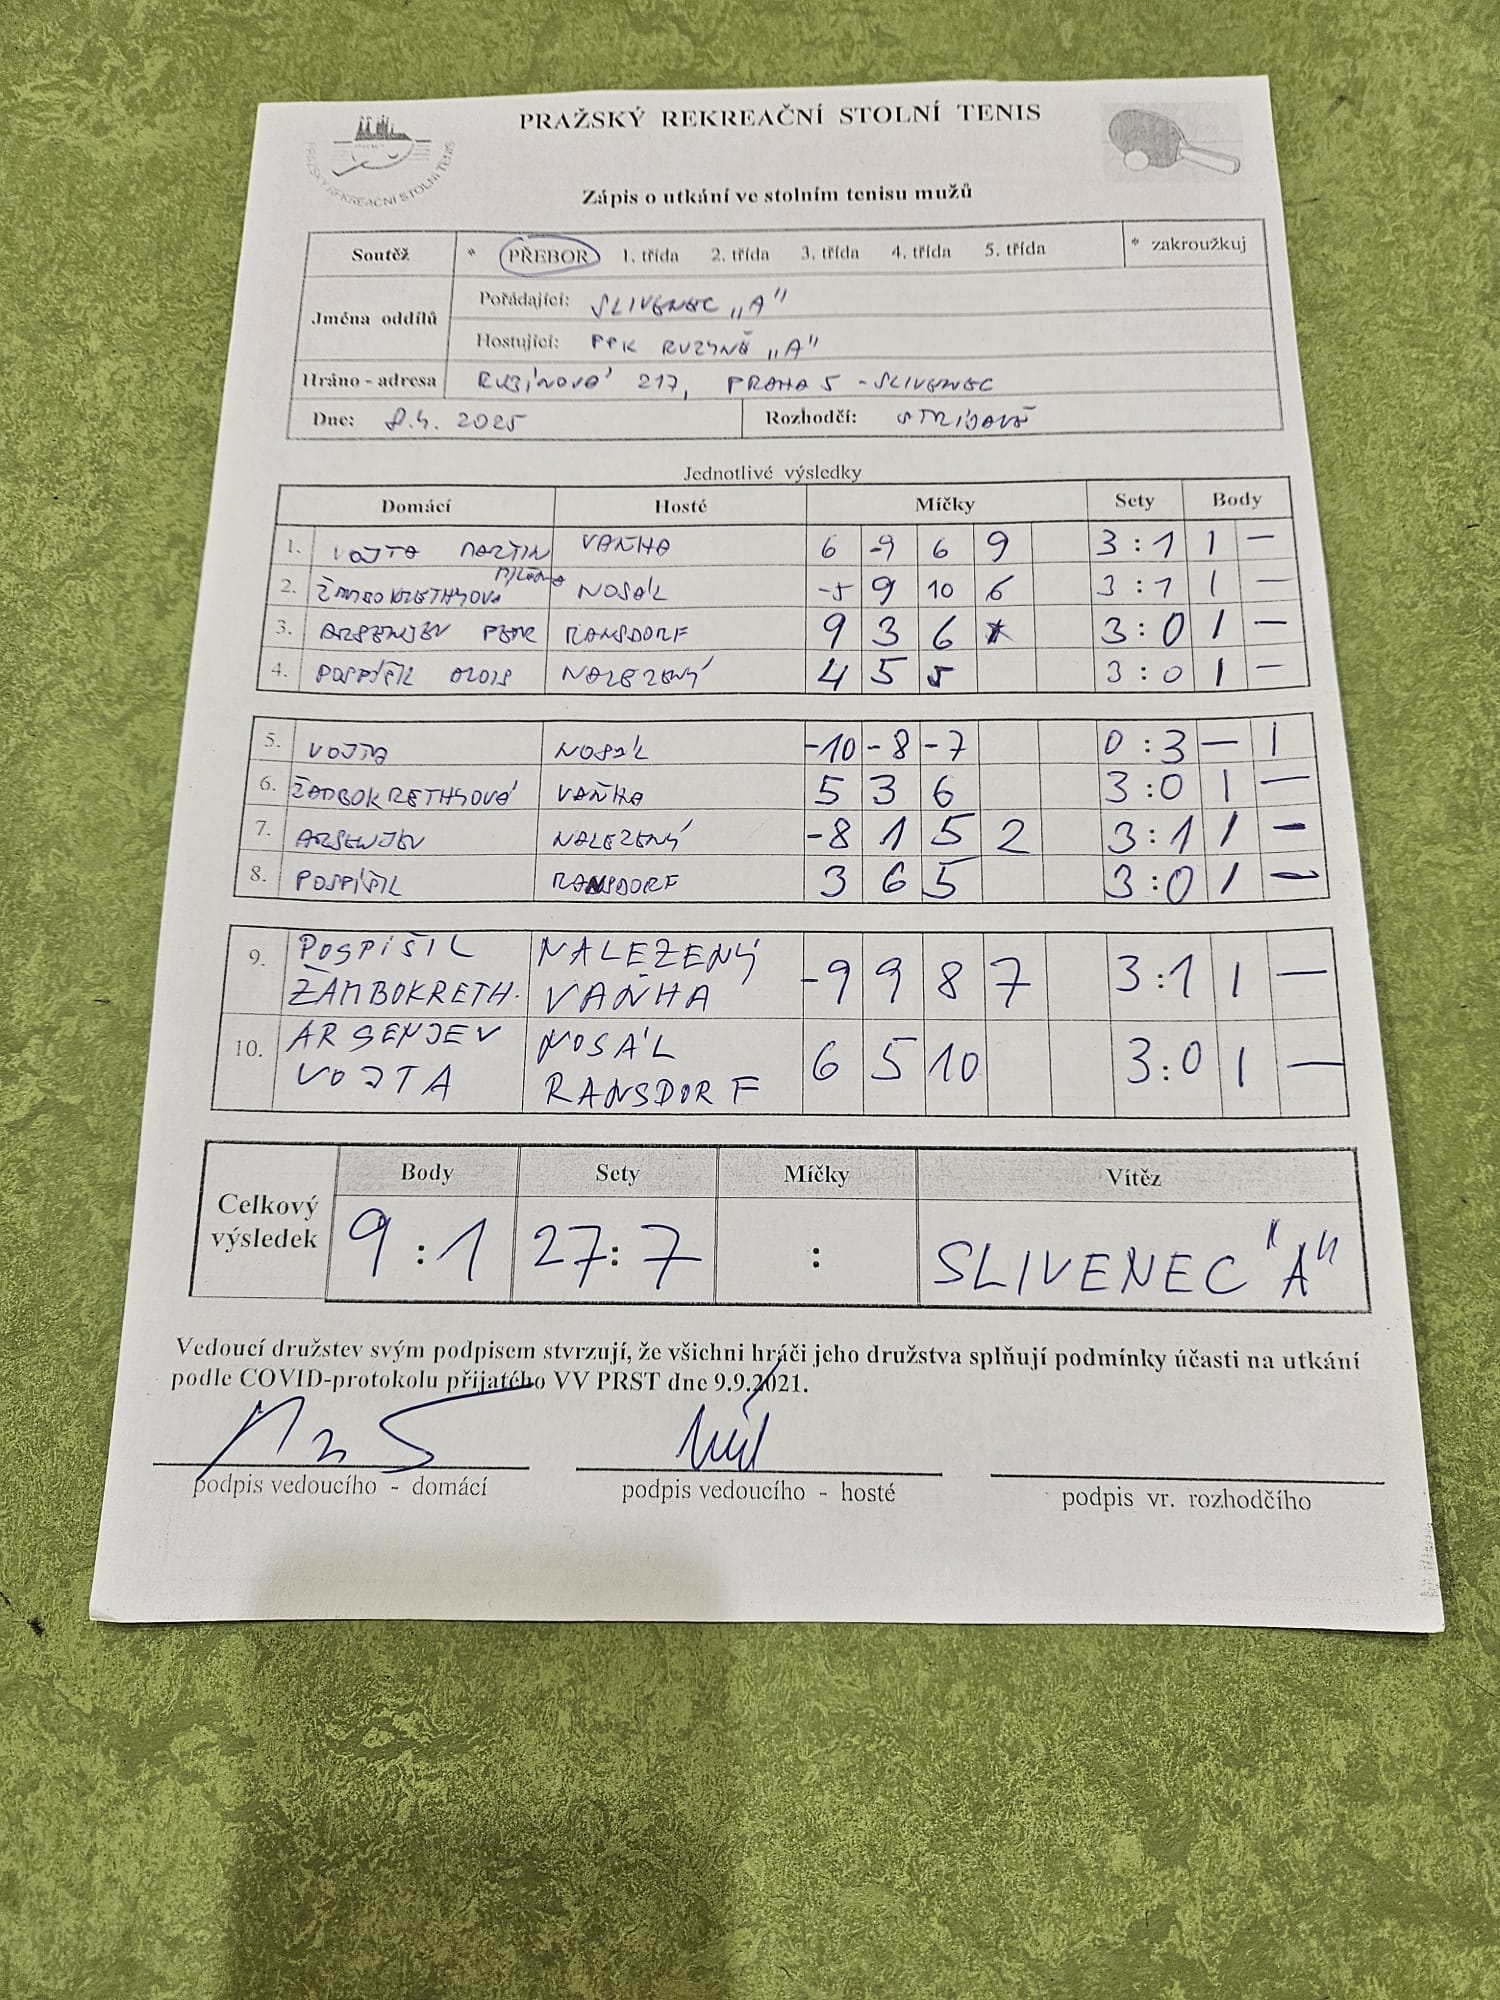 PRAŽSKÝ REKREAČNÍ STOLNÍ TENIS
PRAŽSKÝ REKREAČNÍ STOLNÍ TENIS
Zápis o utkání ve stolním tenisu mužů
Soutěž * PŘEBOR 1. třída 2. třída 3. třída 4. třída 5. třída * zakroužkuj
Jména oddílů
Pořádající: SLIVENEC „A"
Hostující: PPK RUZYNĚ „A"
Hráno - adresa RUBÍNOVÁ 217, PRAHA 5 - SLIVENEC
Dne: 8.4. 2025 Rozhodčí: STŘÍDAVĚ
Jednotlivé výsledky
Domácí Hosté Míčky Sety Body
1. VOJTA MARTIN VAŇHA 6 -9 6 9 3:1 1 —
2. ŽAMBOKRETHYOVÁ NOSÁL -5 9 10 6 3:1 1 —
3. ARSENJEV PETR RANSDORF 9 3 6 3:0 1 —
4. POSPÍŠIL NALEZENÝ 4 5 5 3:0 1 —
5. VOJTA NOSÁL -10 -8 -7 0:3 — 1
6. ŽAMBOKRETHYOVÁ VAŇHA 5 3 6 3:0 1 —
7. ARSENJEV NALEZENÝ -8 1 5 2 3:1 1 —
8. POSPÍŠIL RANSDORF 3 6 5 3:0 1 —
9. POSPÍŠIL NALEZENÝ -9 9 8 7 3:1 1 —
ŽAMBOKRETH. VAŇHA
10. ARSENJEV NOSÁL 6 5 10 3:0 1 —
VOJTA RANSDORF
Body Sety Míčky Vítěz
Celkový výsledek 9:1 27:7 : SLIVENEC "A"
Vedoucí družstev svým podpisem stvrzují, že všichni hráči jeho družstva splňují podmínky účasti na utkání
podle COVID-protokolu přijatého VV PRST dne 9.9.2021.
podpis vedoucího - domácí podpis vedoucího - hosté podpis vr. rozhodčího